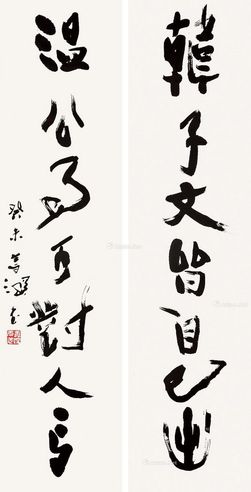 韓子文皆自己出
温公事可對人言
癸未